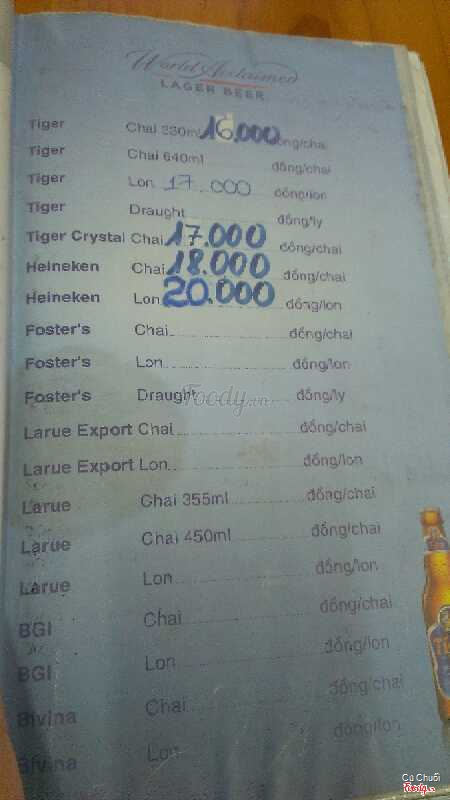 World Acclaimed
LAGER BEER
Tiger Chai 330ml 16.000 đồng/chai
Tiger Chai 640ml đồng/chai
Tiger Lon 17.000 đồng/lon
Tiger Draught đồng/ly
Tiger Crystal Chai 17.000 đồng/chai
Heineken Chai 18.000 đồng/chai
Heineken Lon 20.000 đồng/lon
Foster's Chai đồng/chai
Foster's Lon đồng/lon
Foster's Draught đồng/ly
Foody.vn
Larue Export Chai đồng/chai
Larue Export Lon đồng/lon
Larue Chai 355ml đồng/chai
Larue Chai 450ml đồng/chai
Larue Lon đồng/lon
BGI Chai đồng/chai
BGI Lon đồng/lon
Bivina Chai đồng/chai
Bivina Lon đồng/lon
Cụ Chuối